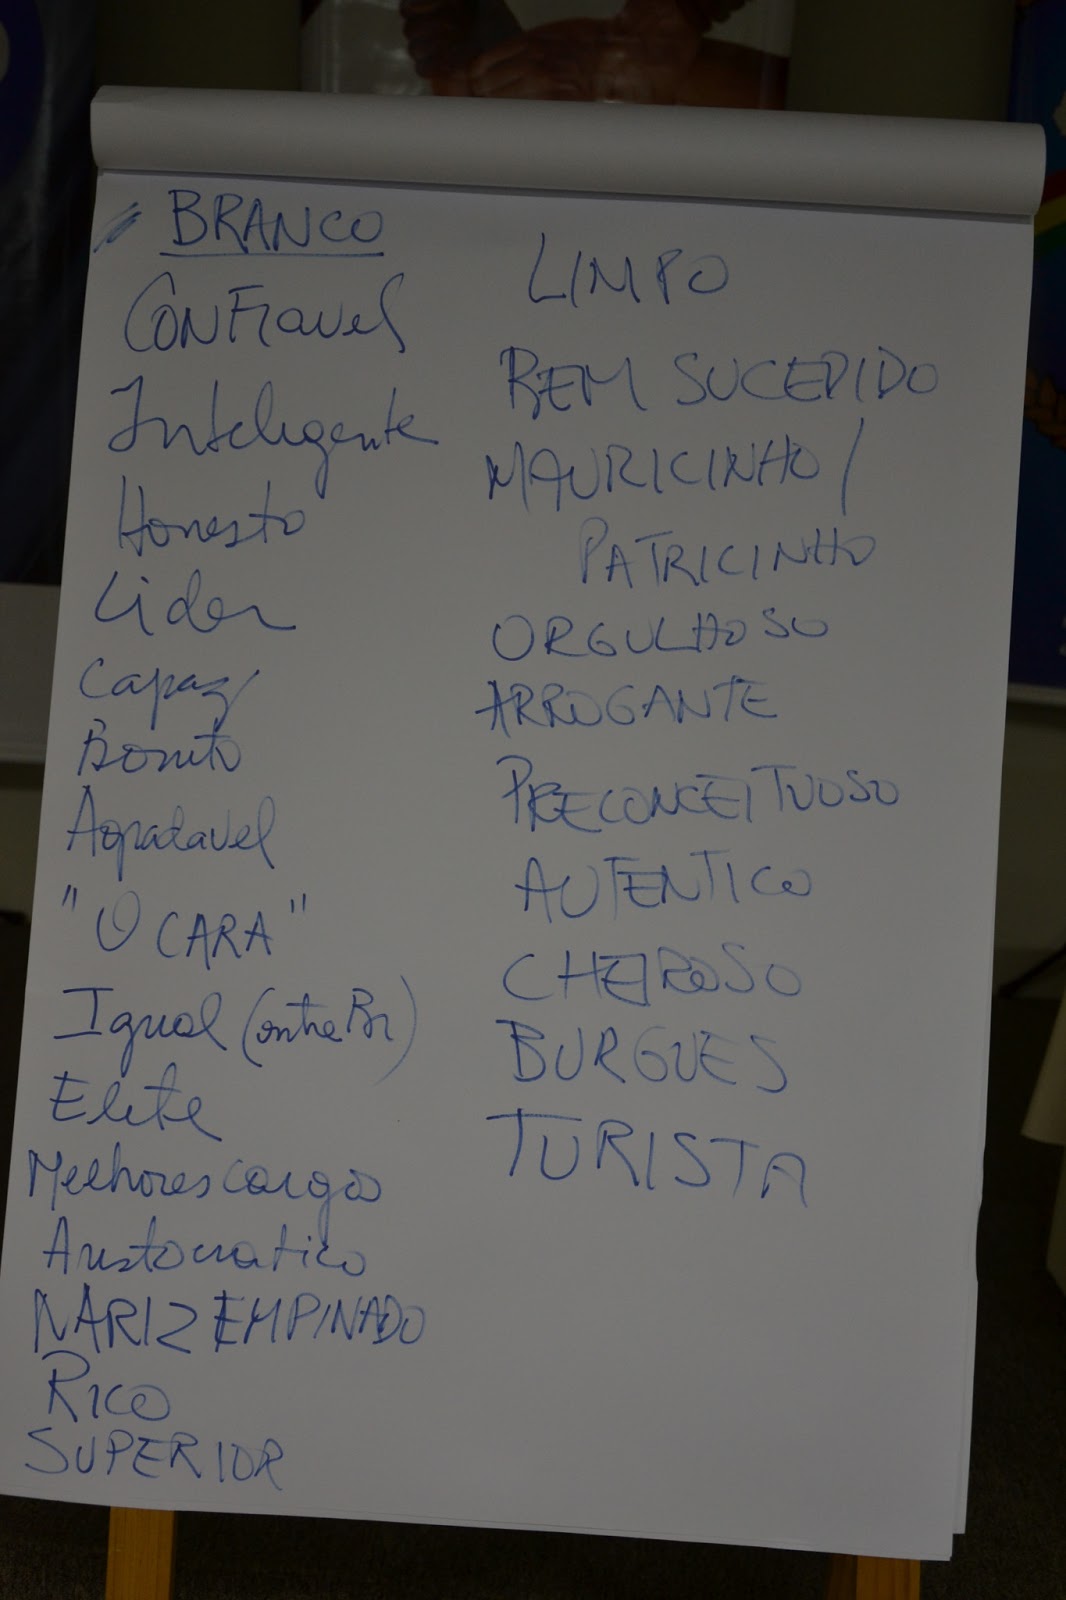 BRANCO
CONFIavel
Inteligente
Honesto
Lider
Capaz
Bonito
Agradavel
"O CARA"
Igual (entre Br)
Elite
Melhores cargos
Aristocratico
NARIZ EMPINADO
RICO
SUPERIOR
LIMPO
BEM SUCEDIDO
MAURICINHO /
PATRICINHO
ORGULHOSO
ARROGANTE
PRECONCEITUOSO
AUTENTICO
CHEIROSO
BURGUES
TURISTA